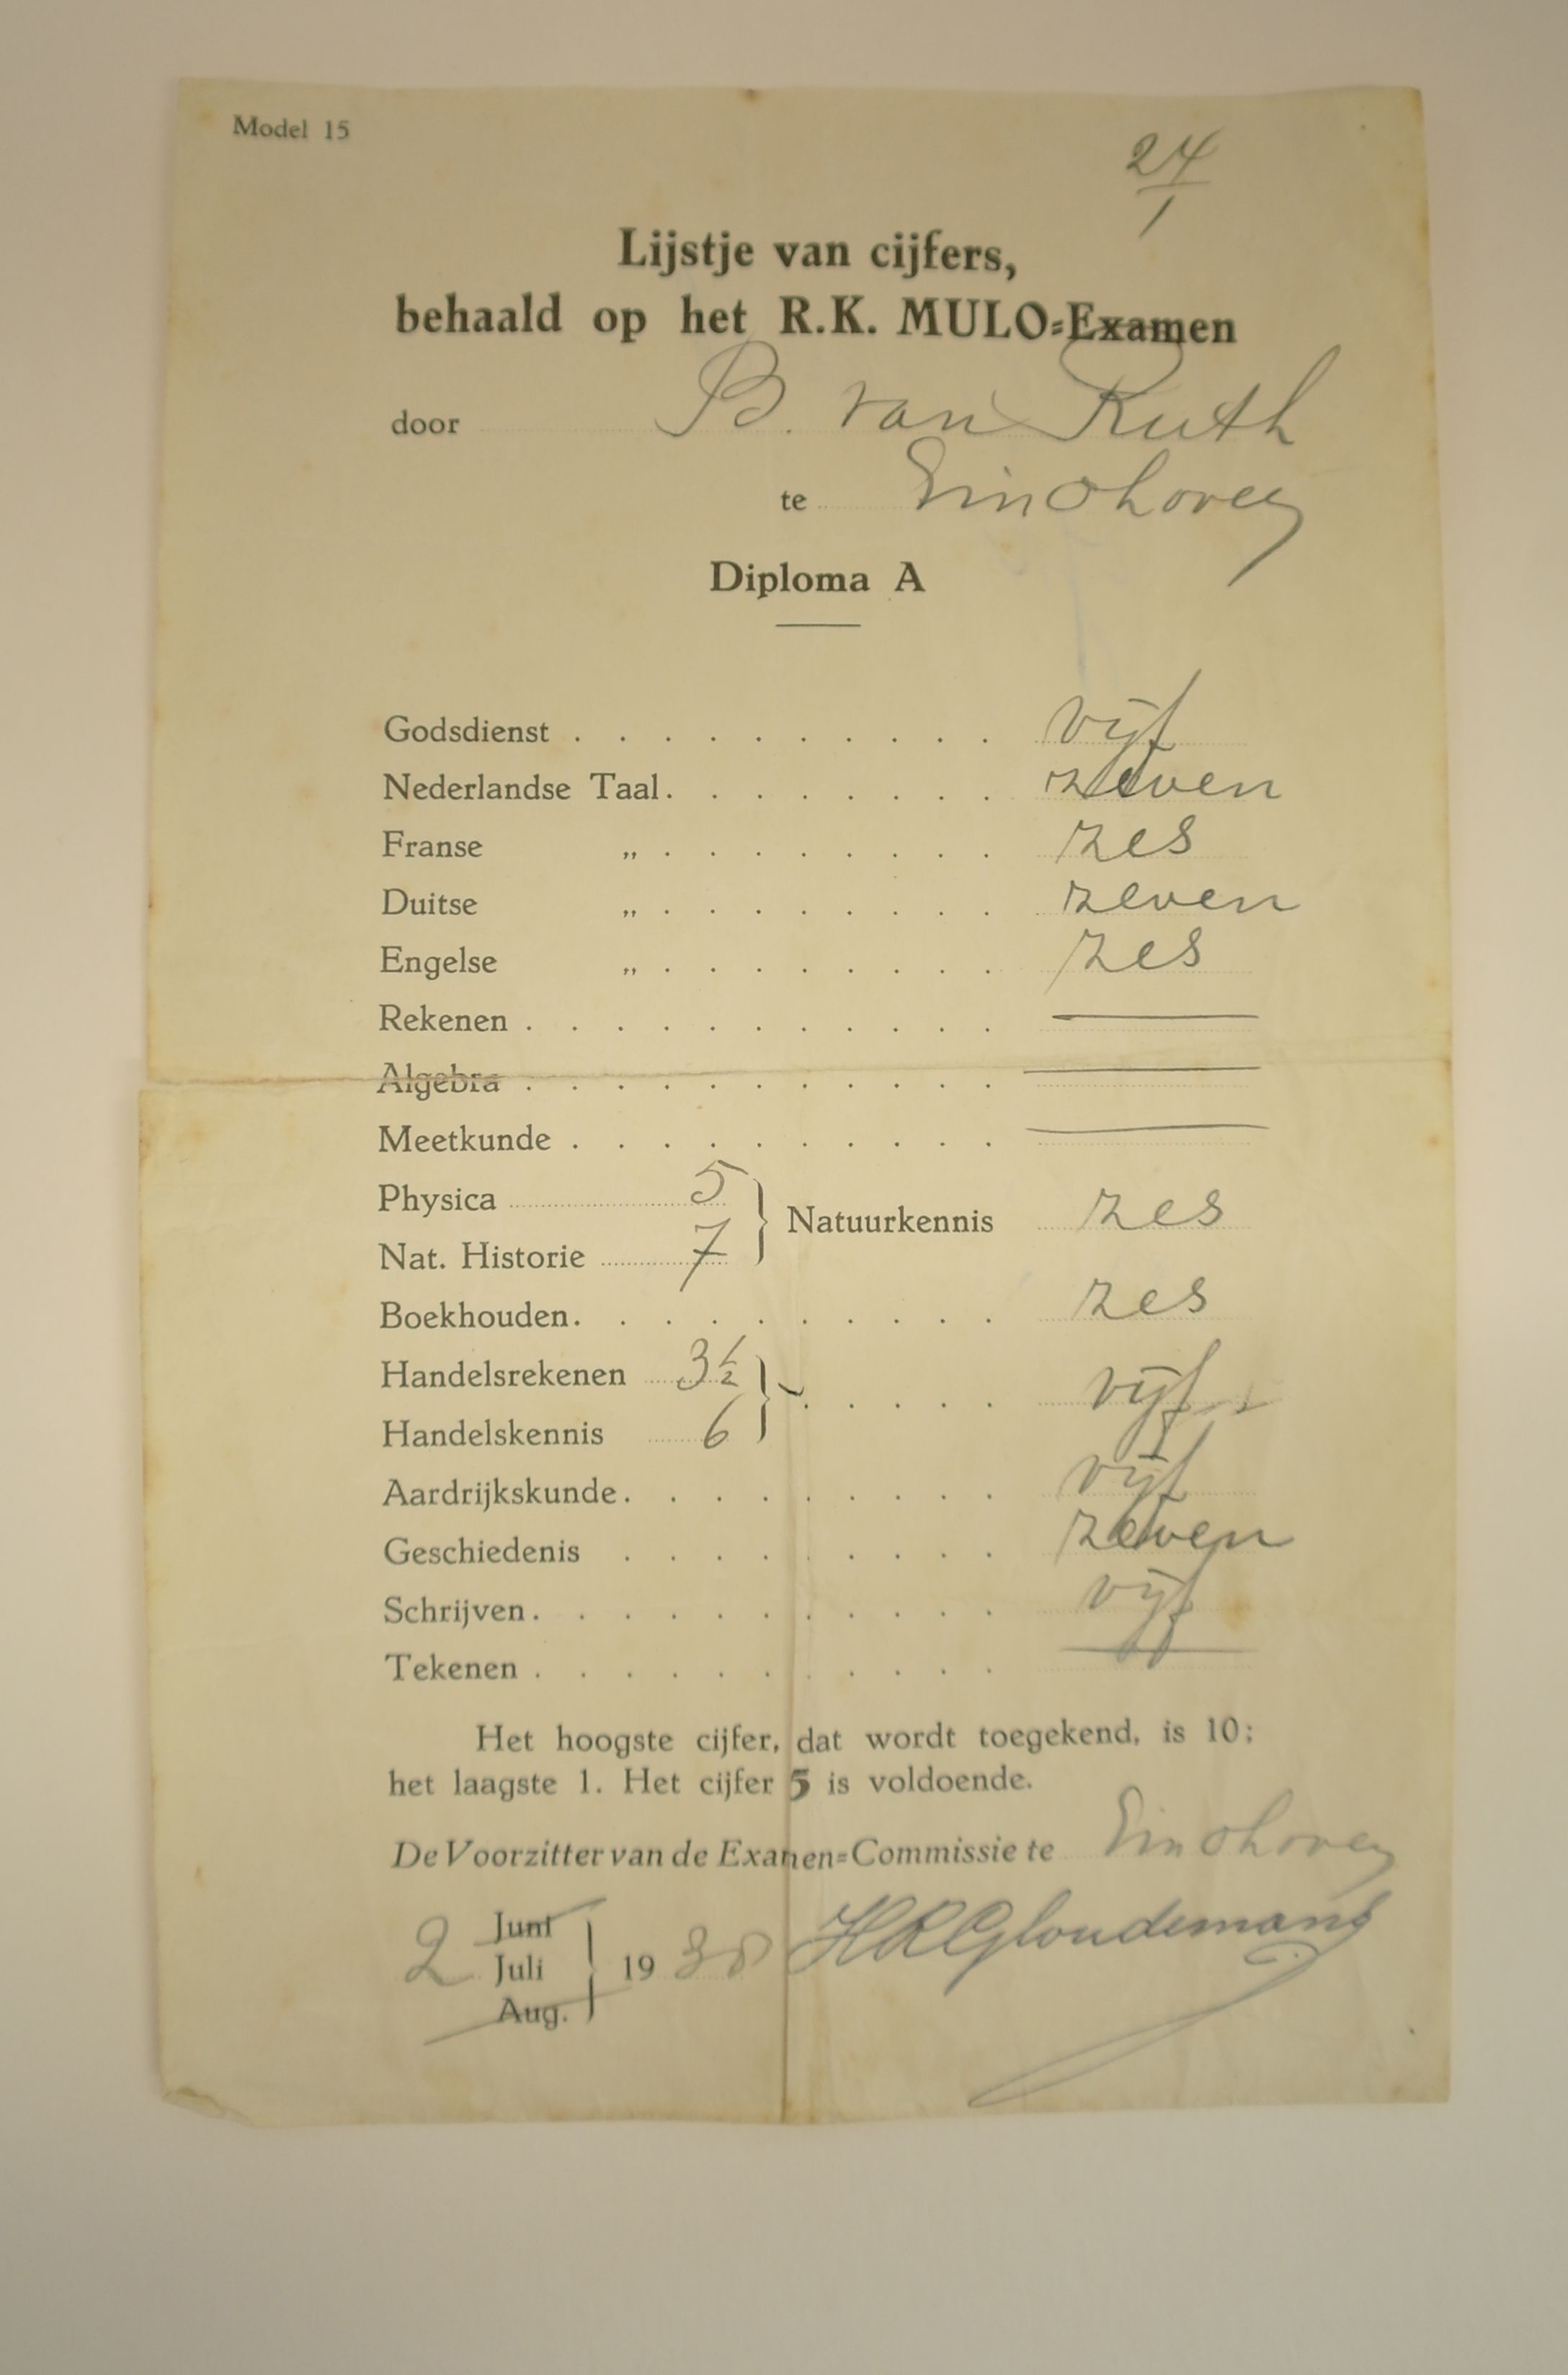 Model 15
24/1
Lijstje van cijfers,
behaald op het R.K. MULO=Examen
door B. van Ruth
te Eindhoven
Diploma A
Godsdienst . . . . . . . . . . vijf
Nederlandse Taal . . . . . . . . zeven
Franse „ . . . . . . . . zes
Duitse „ . . . . . . . . zeven
Engelse „ . . . . . . . . zes
Rekenen . . . . . . . . . . . —
Algebra . . . . . . . . . . . —
Meetkunde . . . . . . . . . . —
Physica 5
Natuurkennis zes
Nat. Historie 7
Boekhouden . . . . . . . . . . zes
Handelsrekenen 3½
} . . . . . vijf
Handelskennis 6
Aardrijkskunde . . . . . . . . . vijf
Geschiedenis . . . . . . . . . zeven
Schrijven . . . . . . . . . . . vijf
Tekenen . . . . . . . . . . . —
Het hoogste cijfer, dat wordt toegekend, is 10;
het laagste 1. Het cijfer 5 is voldoende.
De Voorzitter van de Examen=Commissie te Eindhoven
Juni
2 Juli 19 38 HRGloudemans
Aug.